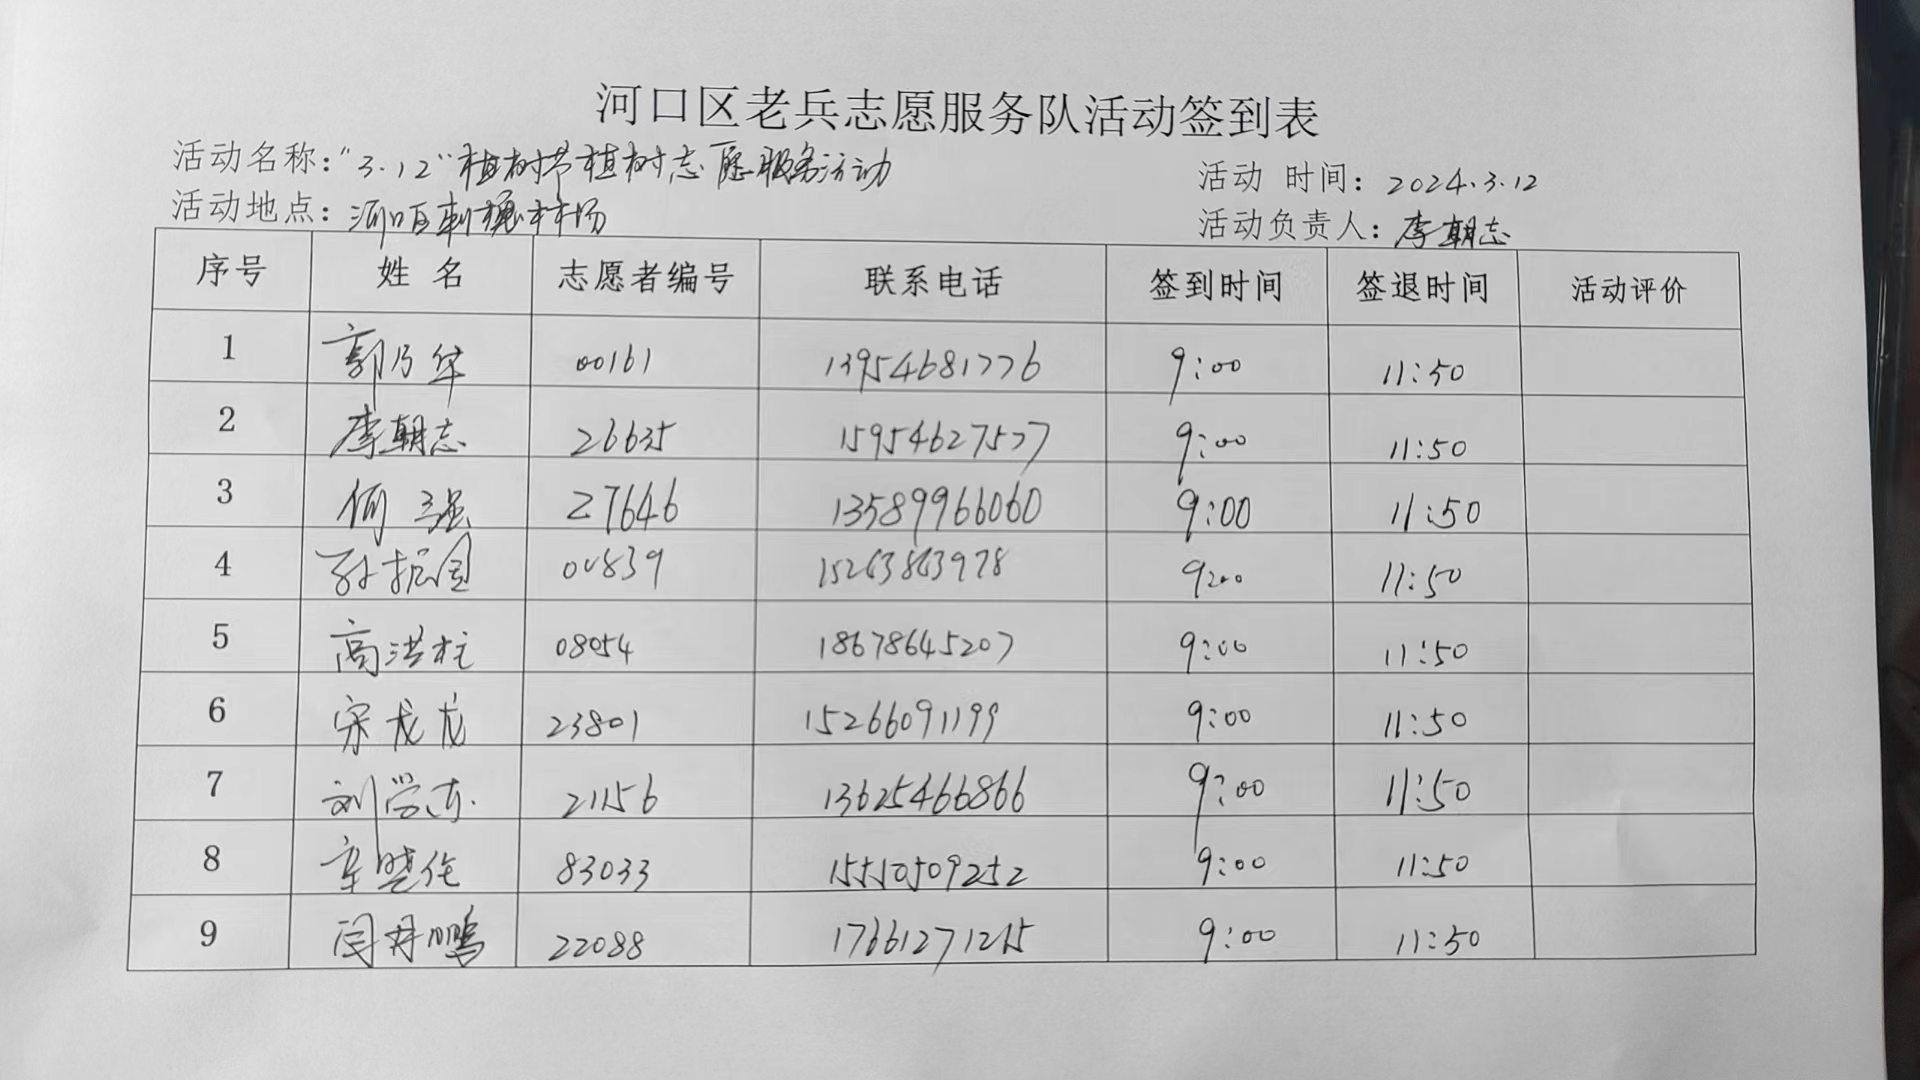 河口区老兵志愿服务队活动签到表
活动名称："3.12"植树节植树志愿服务活动 活动 时间：2024.3.12
活动地点：河口区刺槐林场 活动负责人：李朝志
序号 姓 名 志愿者编号 联系电话 签到时间 签退时间 活动评价
1 郭乃华 00161 13954681776 9:00 11:50
2 李朝志 26635 15954627577 9:00 11:50
3 何强 27646 13589966060 9:00 11:50
4 孙振国 00839 15263863978 9:00 11:50
5 高洪柱 08054 18678645207 9:00 11:50
6 宋龙龙 23801 15266091199 9:00 11:50
7 刘学东 21156 13625466866 9:00 11:50
8 辛晓伦 83033 15510509252 9:00 11:50
9 闫丹鹏 22088 17661271215 9:00 11:50